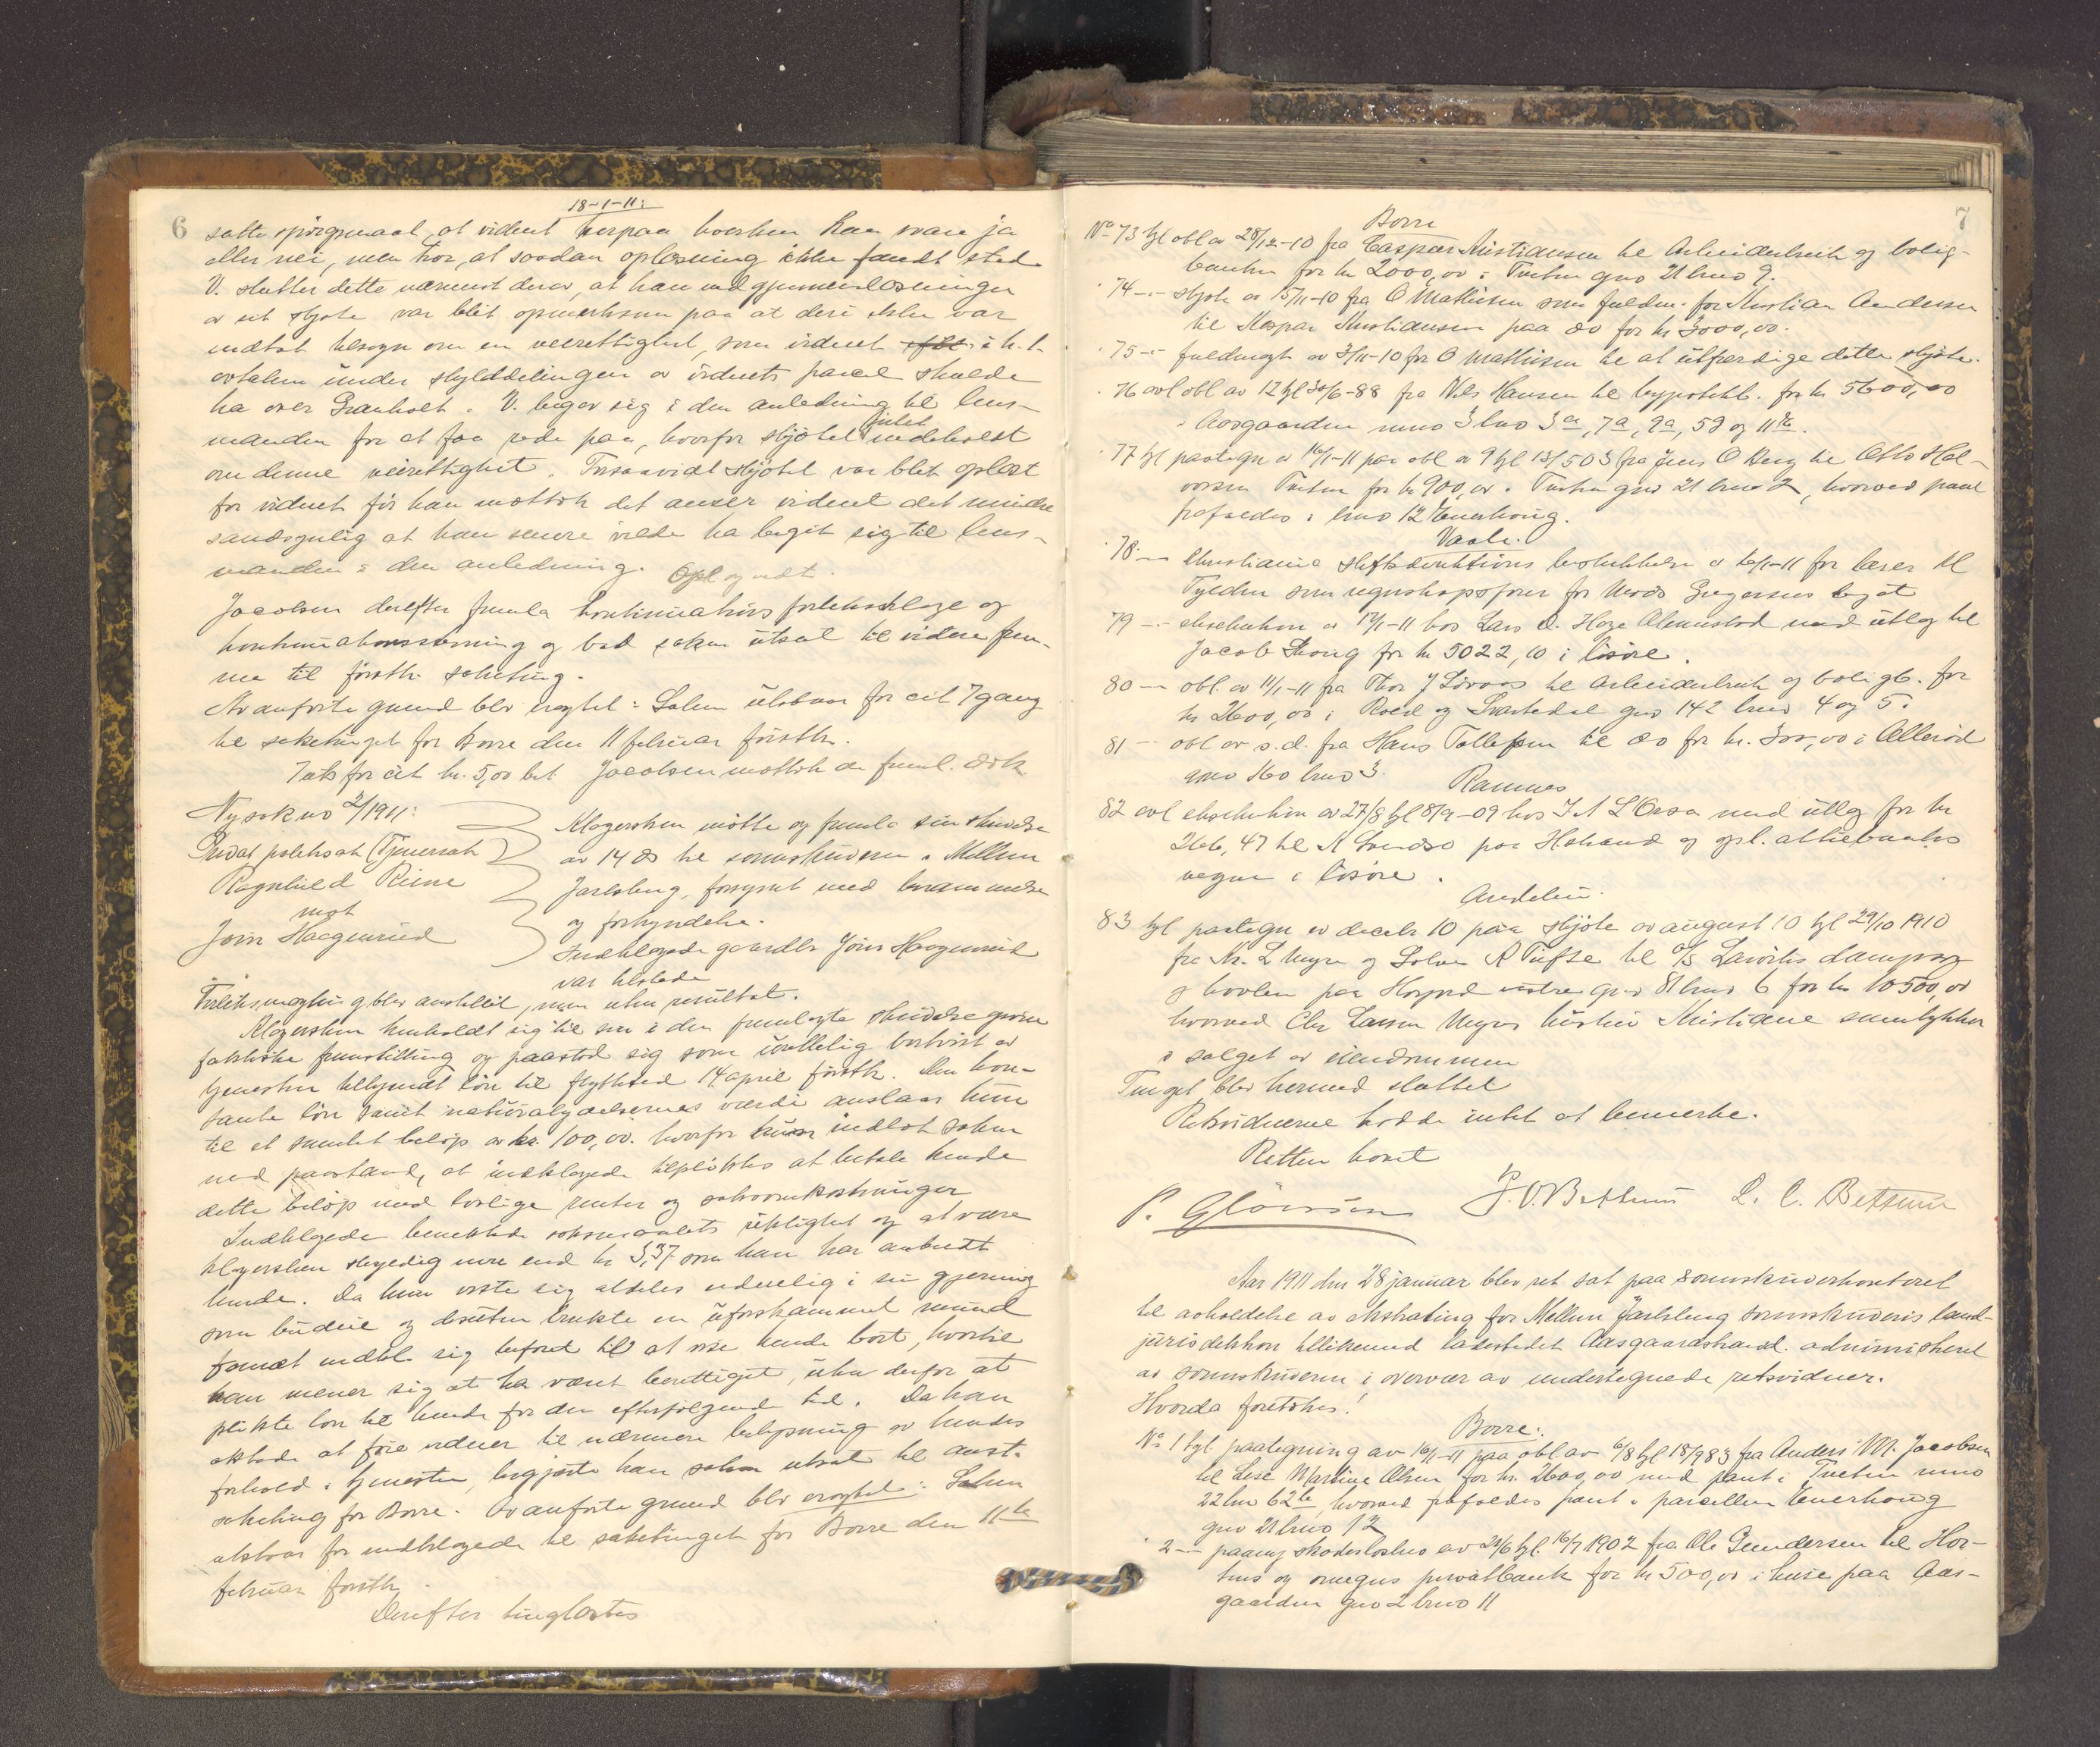 18-1-11:
6
satte spörgsmaal, at vidnet herpaa hverken kan svare ja
eller nei, men tror, at saadan oplæsning ikke fandt sted
V. slutter dette nærmest derav, at han ved gjennemlæsningen
av sit skjöte var blit opmerksom paa at deri ikke var
indtat noget om en veirettighet, som vidnet i h. t.
avtalen under skylddelingen av vidnets parcel skulde
ha over Granholt. V. begav sig i den anledning til lens-
manden for at faa rede paa, hvorfor skjötet intet indeholdt
om denne veirettighet. Forsaavidt skjötet var blit oplæst
for vidnet för han mottok det anser vidnet det mindre
sandsynlig at han senere vilde ha begit sig til lens-
manden i den anledning. Opl og vedt.
Jacobsen derefter fremla kontinuations forliksklage og
kontinuationsstevning og bad saken utsat til videre frem-
me til förstk. saketing.
Av anförte grund blev eragtet: Saken utsættes for eit 7 gang
til saketinget for Borre den 11 februar förstk.
Tats for eit kr. 5,00 bet Jacobsen mottok de freml. dok
Ny sak no 2/1911:
Privat politisak (Tjenersak
Ragnhild Riise
mot
Jörn Haagenrud
Klagersken mötte og fremla sin skrivelse
av 14 ds til sorenskriveren i Mellem
Jarlsberg, forsynet med berammelse
og forkyndelse.
Indklagede gaardbr Jörn Haagenrud
var tilstede
Forliksmægling blev anstillet, men uten resultat.
Klagersken henholdt sig til sin i den fremlagte skrivelse givne
faktiske fremstilling og paastod sig som urettelig bortvist av
tjenesten tilkjendt lön til flyttetid 14 april förstk. Den kon-
tante lön samt naturalydelsernes værdi anslaar hun
til et samlet belöp av kr. 100,00. hvorfor hun indlot saken
med paastand, at indklagede tilpliktes at betale hende
dette belöp med lovlige renter og saksomkostninger
Indklagede benektede söksmaalets riktighet og at være
klagersken skyldig mere end kr 5,37 som han har anbudt
hende. Da hun viste sig aldeles uduelig i sin gjerning
som budeie og desuten brukte en uforskammet mund
fandt indkl. sig beföiet til at vise hende bort, hvortil
han mener sig at ha været berettiget, uten derfor at
plikte lön til hende for den efterfölgende tid. Da han
aktede at före vidner til nærmere belysning av hendes
forhold i tjenesten, begjærte han saken utsat til næst.
saketing for Borre. Av anförte grund blev eragtet: Saken
utsættes for indklagede til saketinget for Borre den 11te
februar förstk.
Derefter tinglæstes
7
Borre
No 73 tgl obl av 28/12-10 fra Caspar Kristiansen til Arbeiderbruk og bolig-
banken for kr 2000,00 i Tveten gno 21 bno 9.
74 -"- skjöte av 15/11-10 fra O Mathisen som fuldm. for Kristian Andersen
til Kaspar Kristiansen paa do for kr 3000,00.
75 -"- fuldmagt av 3/11-10 for O Mathisen til at utfærdige dette skjöte.
76 avl obl av 12 tgl 30/6-88 fra Nils Hansen til hypotekb. for kr 5600,00
i Aasgaarden mno 3 lno 3a, 7a, 9a, 59 og 11te.
77 tgl paategn av 16/1-11 paa obl av 9 tgl 13/5 03 fra Jens O Berg til Otto Hal-
vorsen Tveten for kr 900,00 i Tveten gno 21 bno 2, hvorved pant
frafaldes i bno 12 Enerhaug.
Vaale.
78 -"- Kristiania stiftsdirektions beskikkelse av 10/1-11 for lærer H
Tylden som regnskapsförer for Mads Gregersens legat
79 -"- eksekution av 17/1-11 hos Lars O. Hage Olemestad med utlæg til
Jacob Skoug for kr 5022,10 i lösöre.
80 -"- obl. av 11/1-11 fra Thor J Löraas til Arbeiderbruk og boligb. for
kr 2600,00 i Roed og Svartedal gno 142 bno 4 og 5.
81 -"- obl av s.d. fra Hans Tollefsen til do for kr. 300,00 i Alleröd
gno 160 bno 3.
Ramnes
82 avl eksekution av 27/8 tgl 8/9-09 hos I A L'Orsa med utlæg for kr
266,47 til A Svendsö paa Hakand og opl. aktiebanks
vegne i lösöre.
Andebu.
83 tgl paategn av decebr 10 paa skjöte av august 10 tgl 29/10 1910
fra Kr. L Myre og Sölve A Tufte til A/S Larviks dampsag
og hövleri paa Höyord vestre gno 81 bno 6 for kr 10500,00
hvorved Chr Larsen Myres hustru Kristiane samtykker
i salget av eiendommen
Tinget blev hermed sluttet
Retsvidnerne hadde intet at bemerke.
Retten hævet
P. Glörsen J. O. Bettum L. C. Bettum
Aar 1911 den 28 januar blev ret sat paa sorenskriverkontoret
til avholdelse av ekstrating for Mellem Jarlsberg sorenskriveris land-
jurisdiktion tillikemed ladestedet Aasgaardstrand. administreret
av sorenskriveren i overvær av undertegnede retsvidner.
Hvorda foretokes!
Borre:
No 1 tgl. paategning av 16/1-11 paa obl av 6/8 tgl 18/9 83 fra Anders M. Jacobsen
til Lise Martine Olsen for kr. 2600,00 med pant i Tveten mno
22 lno 62b, hvorved frafaldes pant i parcellen Enerhaug
gno 21 bno 12
2 -"- paany skadeslösbrev av 21/6 tgl. 16/7 1902 fra Ole Gundersen til Hor-
tens og omegns privatbank for kr 500,00 i huse paa Aas-
gaarden gno 2 bno 11